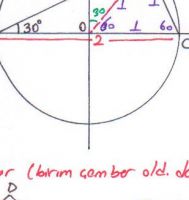 1 1
30
30° 0 60 1 60 C
2
(birim çember old. da
D